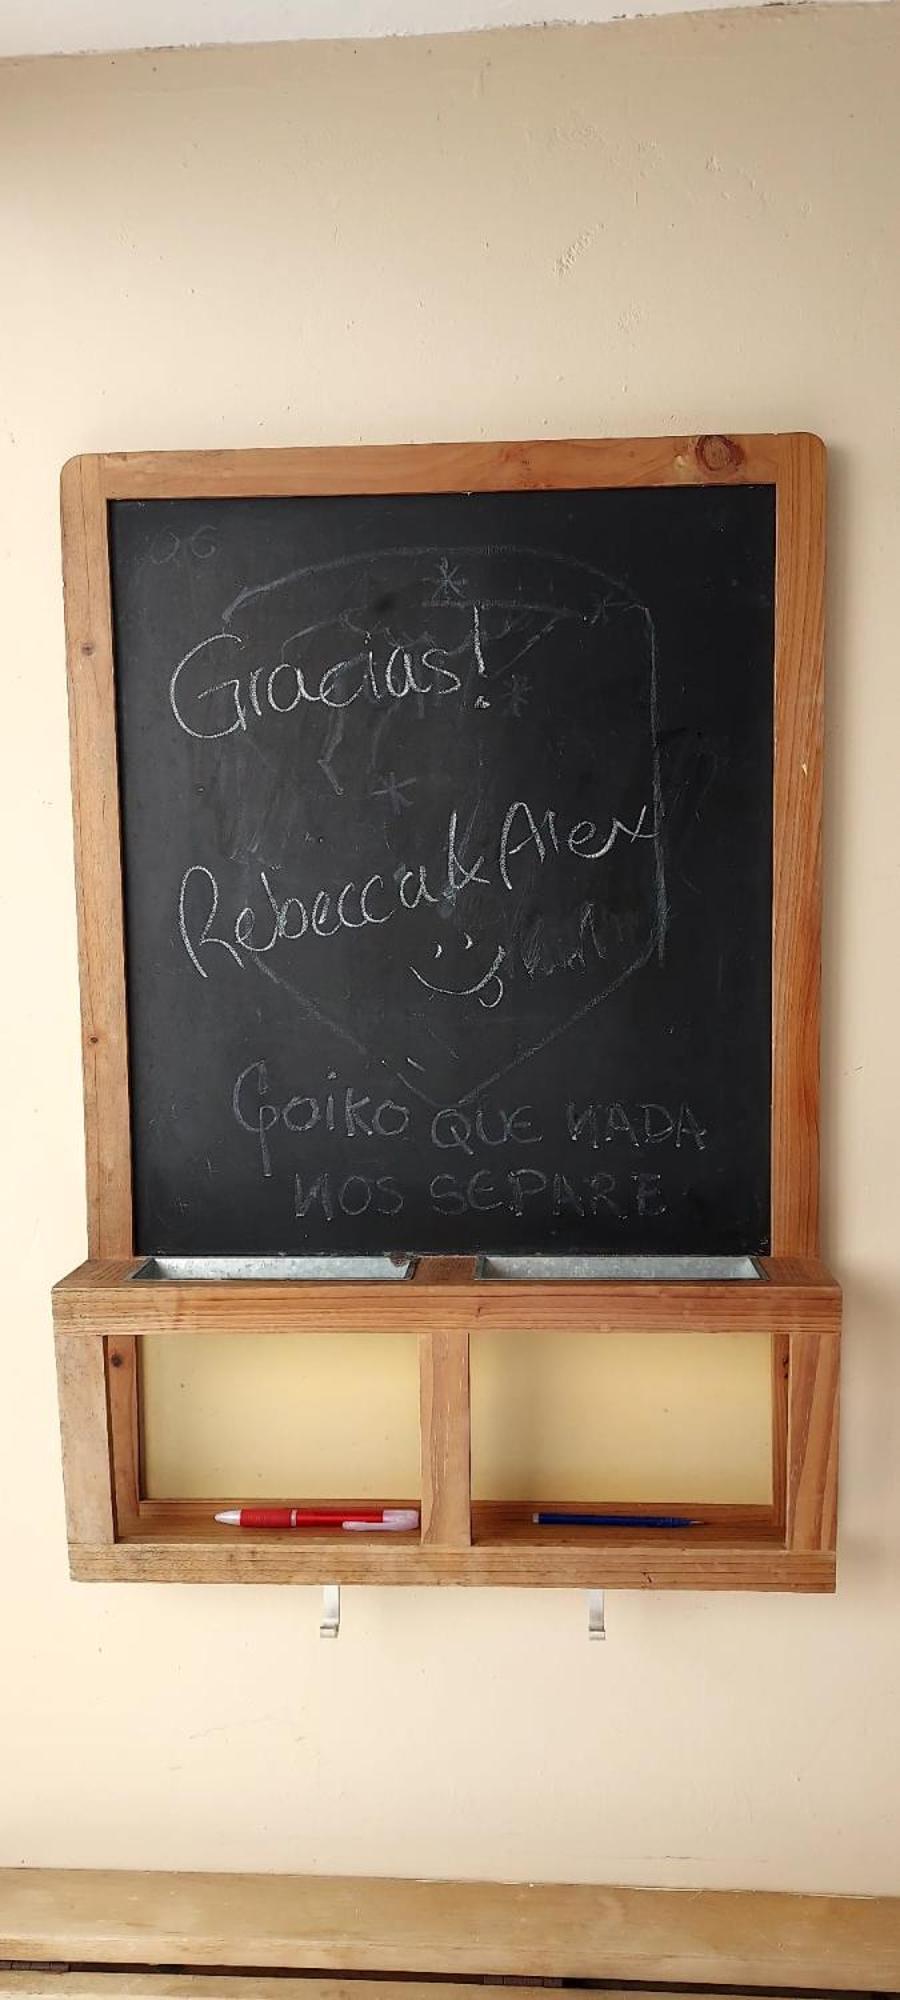 Gracias!
Rebecca & Alex
Goiko QUE NADA
NOS SEPARE